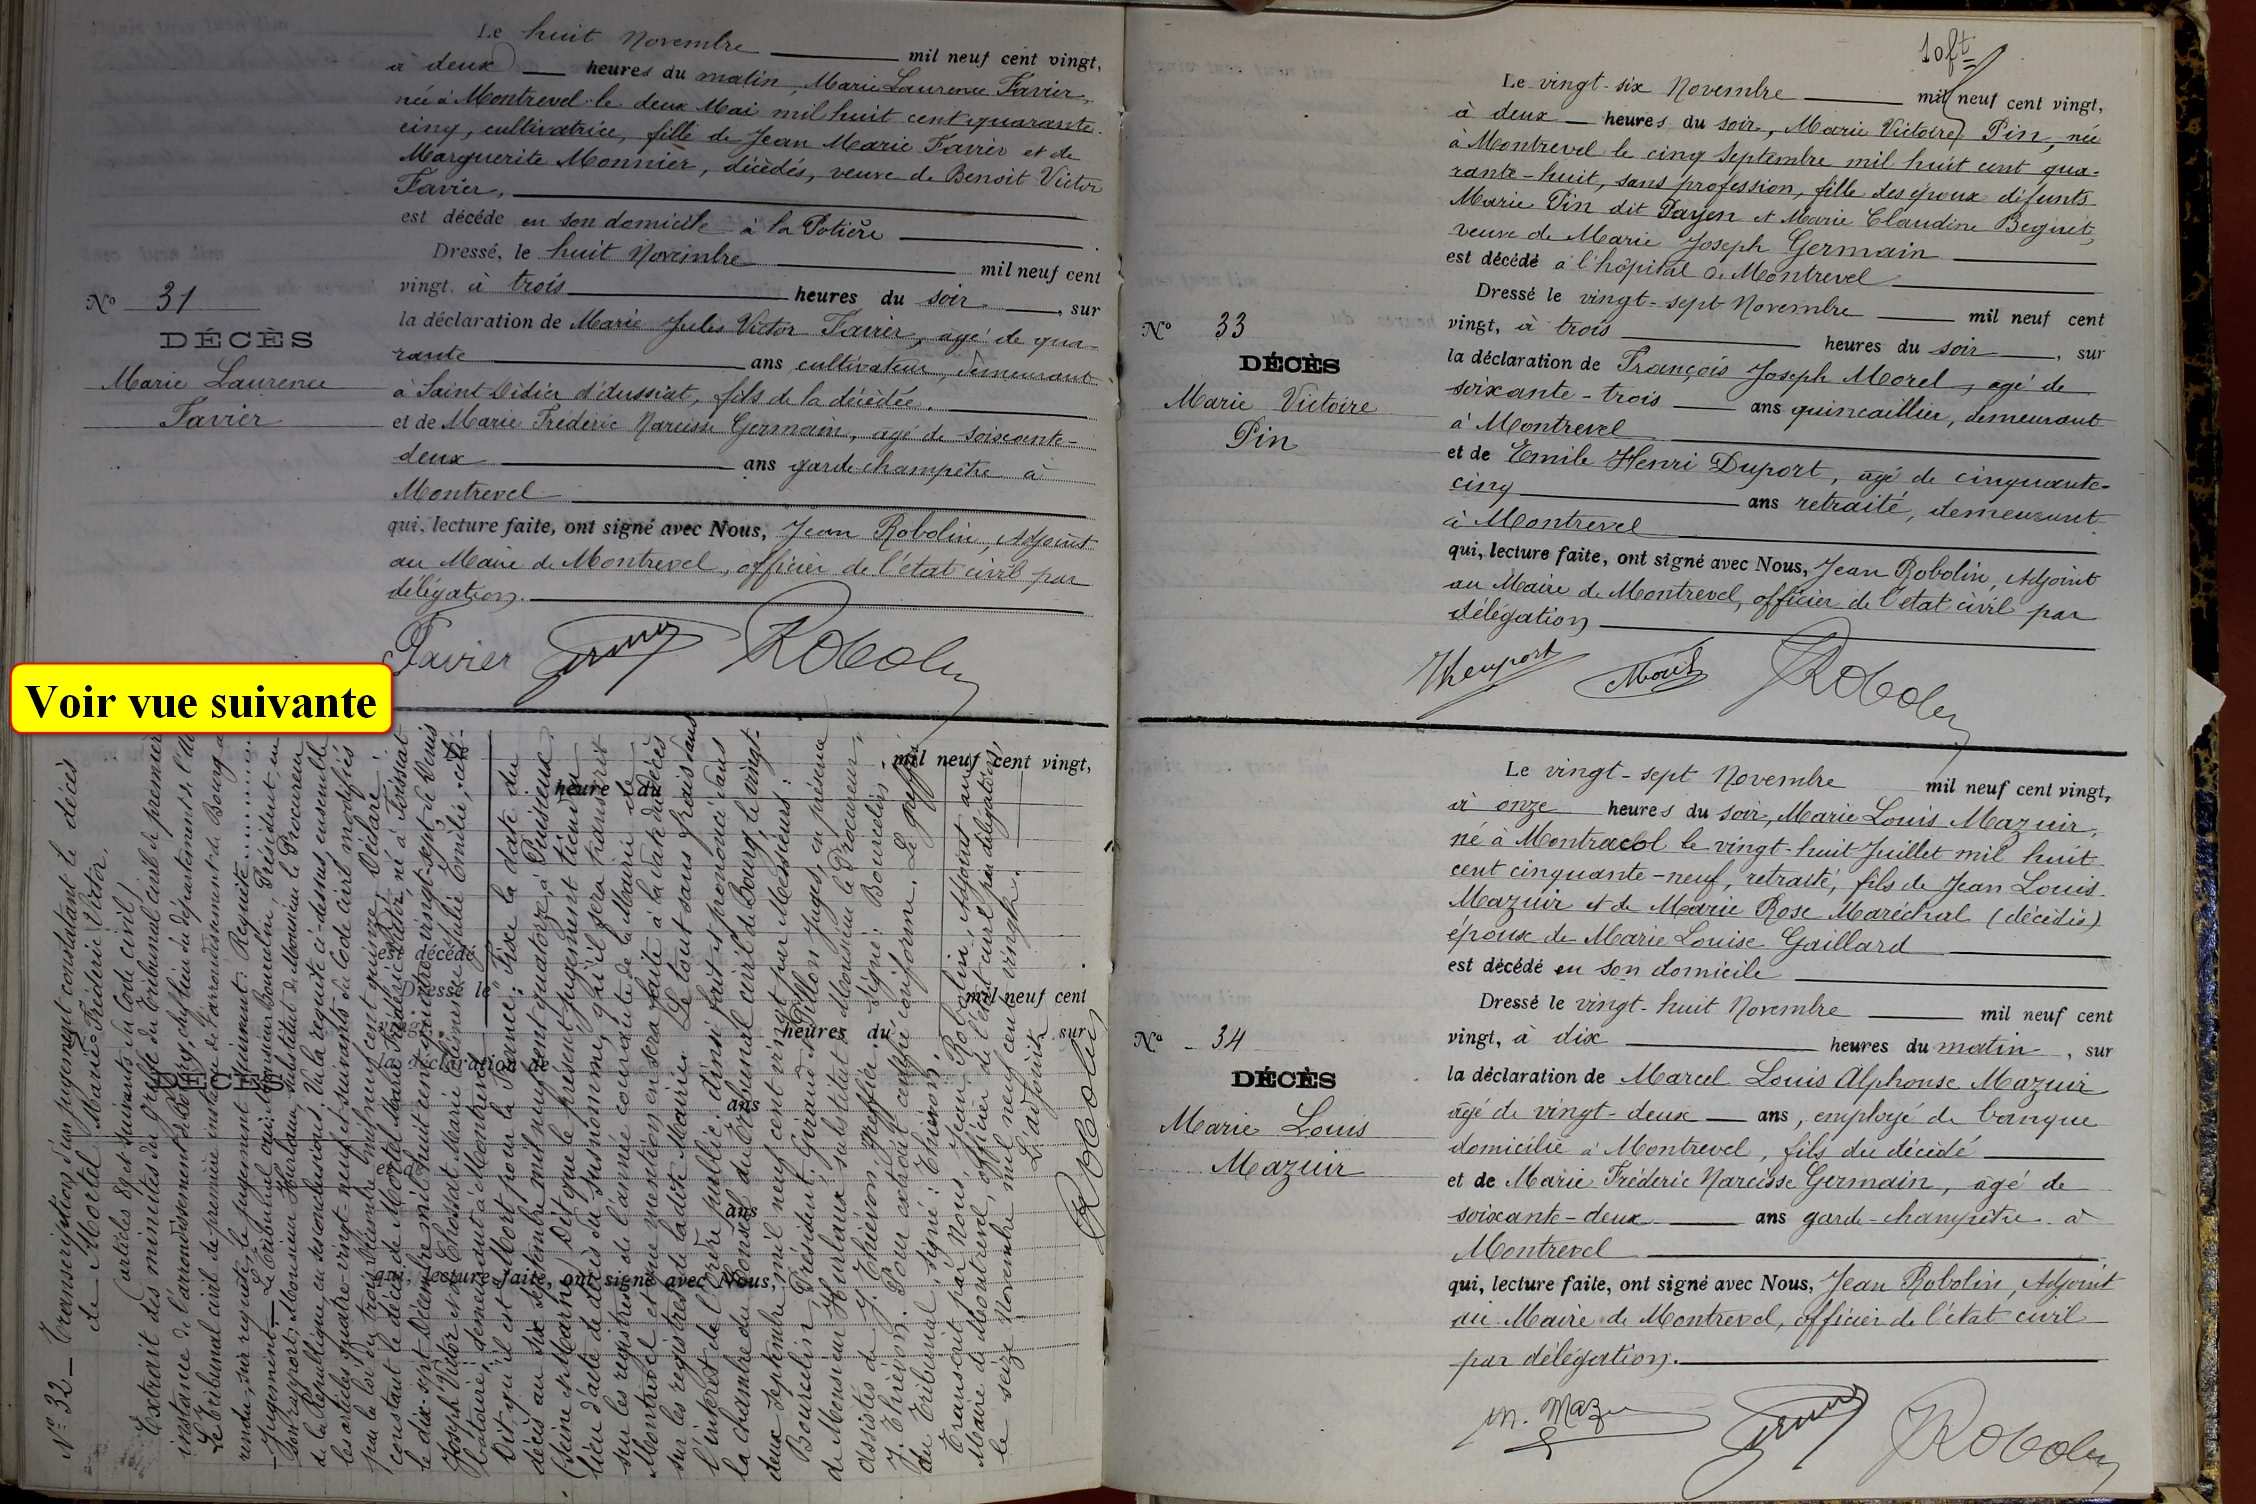 Le huit Novembre mil neuf cent vingt,
à deux heures du matin, Marie Laurence Favier,
née à Montrevel le deux Mai mil huit cent quarante-
cinq, cultivatrice, fille de Jean Marie Favier et de
Marguerite Monnier, décédés, veuve de Benoit Victor
Favier,
est décédé en son domicile à la Potière
Dressé, le huit Novembre mil neuf cent
vingt, à trois heures du soir, sur
la déclaration de Marie Jules Victor Favier, agé de qua-
rante ans cultivateur, demeurant
à Saint Didier d'Aussiat, fils de la décédée,
et de Marie Frédéric Narcisse Germain, agé de soixante-
deux ans garde champêtre à
Montrevel
qui, lecture faite, ont signé avec Nous, Jean Robolin, Adjoint
au Maire de Montrevel, officier de l'état civil par
délégation.
Favier Robolin
N° 31
DÉCÈS
Marie Laurence
Favier
Voir vue suivante
N° 32 _ Transcription d'un jugement constatant le décès
de Mortel Marie Frédéric Victor.
(articles 89 et suivants du Code civil)
Extrait des minutes du Greffe du Tribunal civil de première
instance de l'arrondissement de Bourg, chef lieu du département de l'
Le Tribunal civil de première instance de l'arrondissement de Bourg a
rendu, sur requête, le jugement suivant: Requête
Jugement _ Le Tribunal, ouï Monsieur Bourcelin, Président, en
son rapport, Monsieur Hurlaux, substitut de Monsieur le Procureur
de la République, en ses conclusions. Vu la requête ci-dessus ensemble
les articles quatre-vingt-neuf et suivants du Code civil modifiés
par la loi du trois Décembre mil neuf cent quinze; Déclare
constant le décès de Mortel Marie Frédéric Victor, né à Foissiat
le dix-sept Décembre mil huit cent quatre vingt-sept, de Denis
Joseph Victor et de Chossat Marie Clémence Julie Emilie, céli-
bataire, demeurant à Montrevel;
Dit qu'il est Mort pour la France; Fixe la date du
décès au six Septembre mil neuf cent quatorze, à Puisieux
(Seine et Marne) Dit que le présent jugement tiendra
lieu d'acte de décès du susnommé, qu'il sera transcrit
sur les registres de l'année courante de la Mairie de
Montrevel et que mention en sera faite à la date du décès
sur les registres de la dite Mairie. Le tout sans frais dans
l'intérêt de l'ordre public. Ainsi fait et prononcé dans
la chambre du Conseil du Tribunal civil de Bourg, le vingt-
deux Septembre mil neuf cent vingt par Messieurs:
Bourcelin Président; Giraud et Pillon Juges, en présence
de Monsieur Hurlaux substitut de Monsieur le Procureur,
assistés de J. Thiévon greffier. Signé: Bourcelin
J. Thiévon. Pour extrait certifié conforme. Le greffier
du Tribunal, signé: Thiévon.
Transcrit par Nous, Jean Robolin, Adjoint au
Maire de Montrevel, officier de l'état civil par délégation,
le seize Novembre mil neuf cent vingt.
L'adjoint,
Robolin
mil neuf cent vingt,
heure du
est décédé
Dressé le mil neuf cent
vingt, heures du sur
la déclaration de
ans
et de
ans
qui, lecture faite, ont signé avec Nous,
DÉCÈS
10 ft
Le vingt-six Novembre mil neuf cent vingt,
à deux heures du soir, Marie Victoire Pin, née
à Montrevel le cinq Septembre mil huit cent qua-
rante-huit, sans profession, fille des époux défunts
Marie Pin dit Payen et Marie Claudine Beguet,
veuve de Marie Joseph Germain
est décédé à l'hôpital de Montrevel
Dressé le vingt-sept Novembre mil neuf cent
vingt, à trois heures du soir, sur
la déclaration de François Joseph Morel, agé de
soixante-trois ans quincaillier, demeurant
à Montrevel
et de Emile Henri Duport, agé de cinquante-
cinq ans retraité, demeurant
à Montrevel
qui, lecture faite, ont signé avec Nous, Jean Robolin, Adjoint
au Maire de Montrevel, officier de l'état civil par
délégation
Duport Morel Robolin
N° 33
DÉCÈS
Marie Victoire
Pin
Le vingt-sept Novembre mil neuf cent vingt,
à onze heures du soir, Marie Louis Mazuir,
né à Montracol le vingt-huit Juillet mil huit
cent cinquante-neuf, retraité, fils de Jean Louis
Mazuir et de Marie Rose Maréchal (décédés)
époux de Marie Louise Gaillard
est décédé en son domicile
Dressé le vingt-huit Novembre mil neuf cent
vingt, à dix heures du matin, sur
la déclaration de Marcel Louis Alphonse Mazuir
agé de vingt-deux ans, employé de banque
domicilié à Montrevel, fils du décédé
et de Marie Frédéric Narcisse Germain, agé de
soixante-deux ans garde-champêtre à
Montrevel
qui, lecture faite, ont signé avec Nous, Jean Robolin, Adjoint
au Maire de Montrevel, officier de l'état civil
par délégation.
M. Mazuir Robolin
N° 34
DÉCÈS
Marie Louis
Mazuir